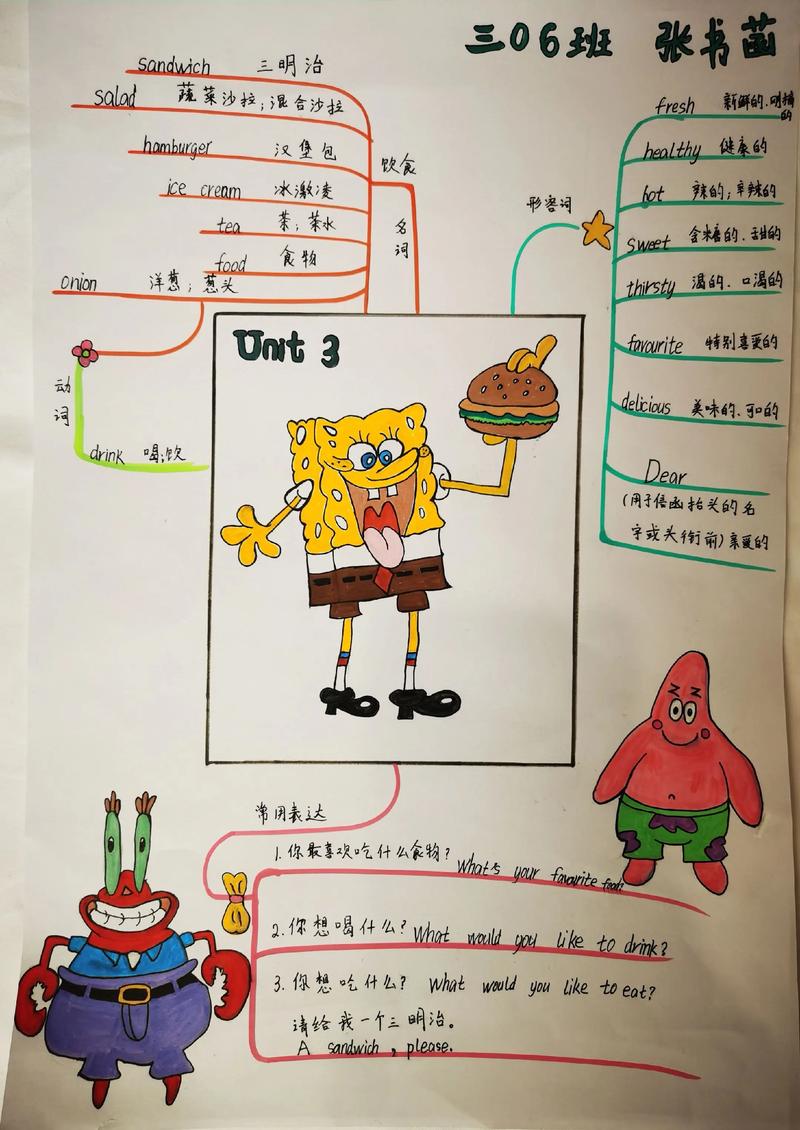 三06班 张书菡
sandwich 三明治
salad 蔬菜沙拉；混合沙拉
hamburger 汉堡包
ice cream 冰激凌
tea 茶；茶水
food 食物
onion 洋葱；葱头
饮食
名词
动词
drink 喝；饮
形容词
fresh 新鲜的、刚摘的
healthy 健康的
hot 辣的；辛辣的
sweet 含糖的、甜的
thirsty 渴的、口渴的
favourite 特别喜爱的
delicious 美味的、可口的
Dear
(用于信函抬头的名
字或头衔前)亲爱的
Unit 3
常用表达
1.你最喜欢吃什么食物? What's your favourite food?
2.你想喝什么? What would you like to drink?
3.你想吃什么? What would you like to eat?
请给我一个三明治。
A sandwich, please.